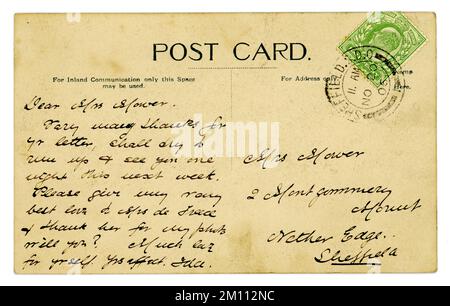 POST CARD.
For Inland Communication only this Space
may be used.
For Address on
Here.
SHEFFIELD
11 AM
NO
05
Dear Mrs Mower.
Very many thanks for
yr letter, shall try to
run up & see you one
night this next week.
Please give my very
best love to Mrs de
& thank her for my photo
will you? Much love
for yrself. Yrs affect. Ida.
Mrs Mower
2 Montgommery
Mount
Nether Edge.
Sheffield
alamy
Image ID: 2M112NC
www.alamy.com